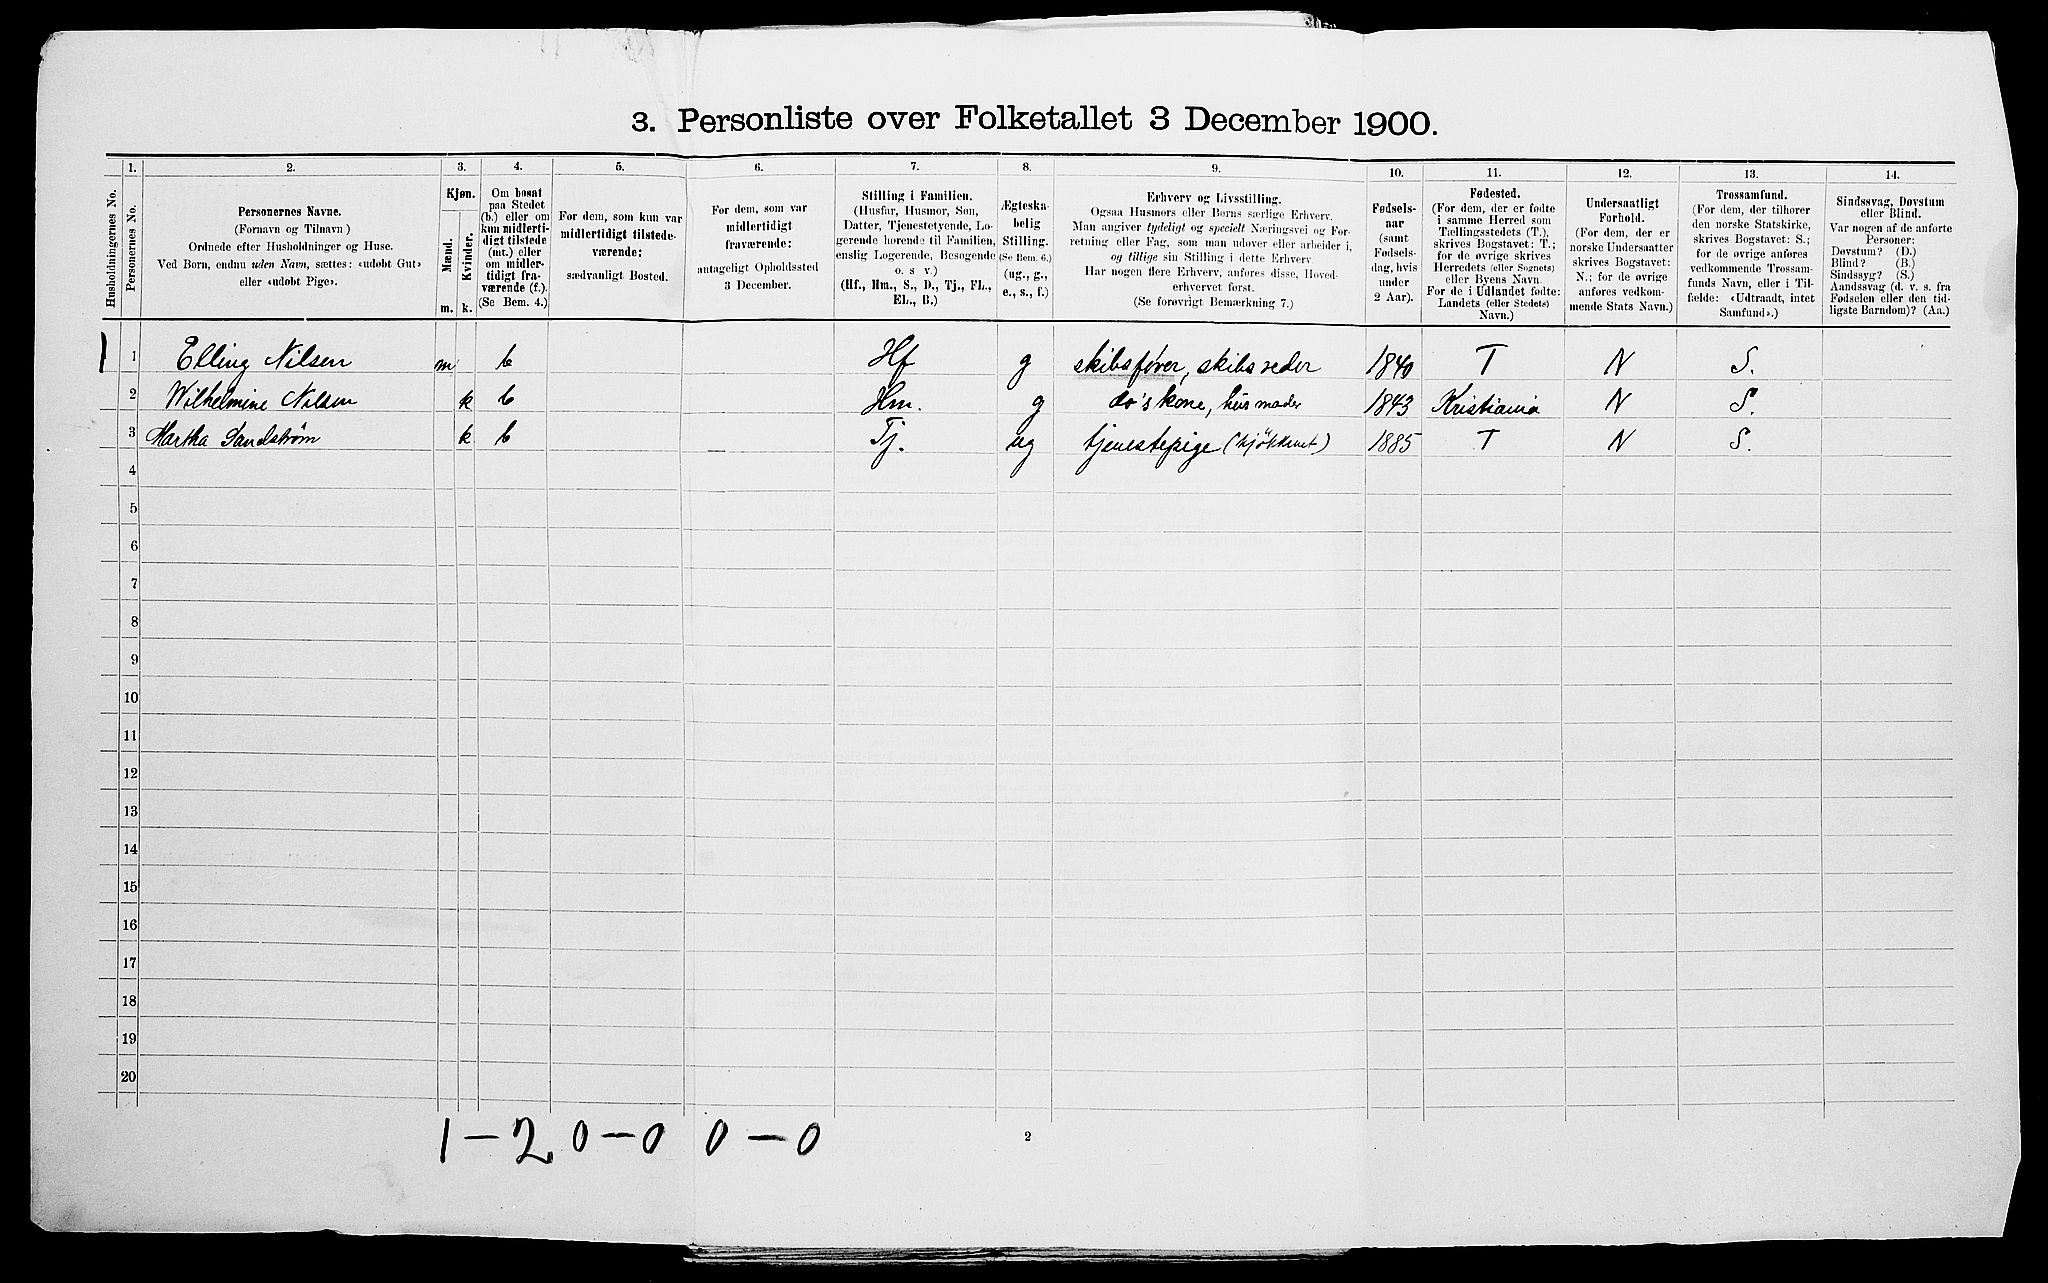 3. Personliste over Folketallet 3 December 1900.
Husholdningernes No.
1.
Personernes No.
2.
Personernes Navne.
(Fornavn og Tilnavn)
Ordnede efter Husholdninger og Huse.
Ved Børn, endnu uden Navn, sættes: «udøbt Gut»
eller «udøbt Pige».
3.
Kjøn.
Mænd.
Kvinder.
m. k.
4.
Om bosat
paa Stedet
(b.) eller om
kun midlerti-
digt tilstede
(mt.) eller
om midler-
tidigt fra-
værende (f.).
(Se Bem. 4.)
5.
For dem, som kun var
midlertidigt tilstede-
værende:
sædvanligt Bosted.
6.
For dem, som var
midlertidigt
fraværende:
antageligt Opholdssted
3 December.
7.
Stilling i Familien.
(Husfar, Husmor, Søn,
Datter, Tjenestetyende, Lo-
gerende hørende til Familien,
enslig Logerende, Besøgende
o. s v.)
(Hf., Hm., S., D., Tj., FL.,
EL., B.)
8.
Ægteska-
belig
Stilling.
(Se Bem. 6.)
(ug., g.,
e., s., f.)
9.
Erhverv og Livsstilling.
Ogsaa Husmors eller Børns særlige Erhverv.
Man angiver tydeligt og specielt Næringsvei og For-
retning eller Fag, som man udøver eller arbeider i,
og tillige sin Stilling i dette Erhverv.
Har nogen flere Erhverv, anføres disse, Hoved-
erhvervet først.
(Se forøvrigt Bemærkning 7.)
10.
Fødsels-
aar
(samt
Fødsels-
dag, hvis
under
2 Aar).
11.
Fødested.
(For dem, der er fødte
i samme Herred som
Tællingsstedets (T.),
skrives Bogstavet: T.;
for de øvrige skrives
Herredets (eller Sognets)
eller Byens Navn.
For de i Udlandet fødte:
Landets (eller Stedets)
Navn.)
12.
Undersaatligt
Forhold.
(For dem, der er
norske Undersaatter
skrives Bogstavet:
N.; for de øvrige
anføres vedkom-
mende Stats Navn.)
13.
Trossamfund.
(For dem, der tilhører
den norske Statskirke,
skrives Bogstavet: S.;
for de øvrige anføres
vedkommende Trossam-
funds Navn, eller i Til-
fælde: «Udtraadt, intet
Samfund».)
14.
Sindssvag, Døvstum
eller Blind.
Var nogen af de anførte
Personer:
Døvstum? (D.)
Blind? (B.)
Sindssyg? (S.)
Aandssvag (d. v. s. fra
Fødselen eller den tid-
ligste Barndom)? (Aa.)
1 1 Elling Nilsen m b Hf g skibsfører, skibsreder 1840 T N S.
2 Wilhelmine Nilsen k b Hm. g do's kone, husmoder 1843 Kristiania N S.
3 Martha Sandstrøm k b Tj. ug tjenestepige (kjøkkenet) 1885 T N S.
4
5
6
7
8
9
10
11
12
13
14
15
16
17
18
19
20
1 – 2 0 – 0 0 – 0
2